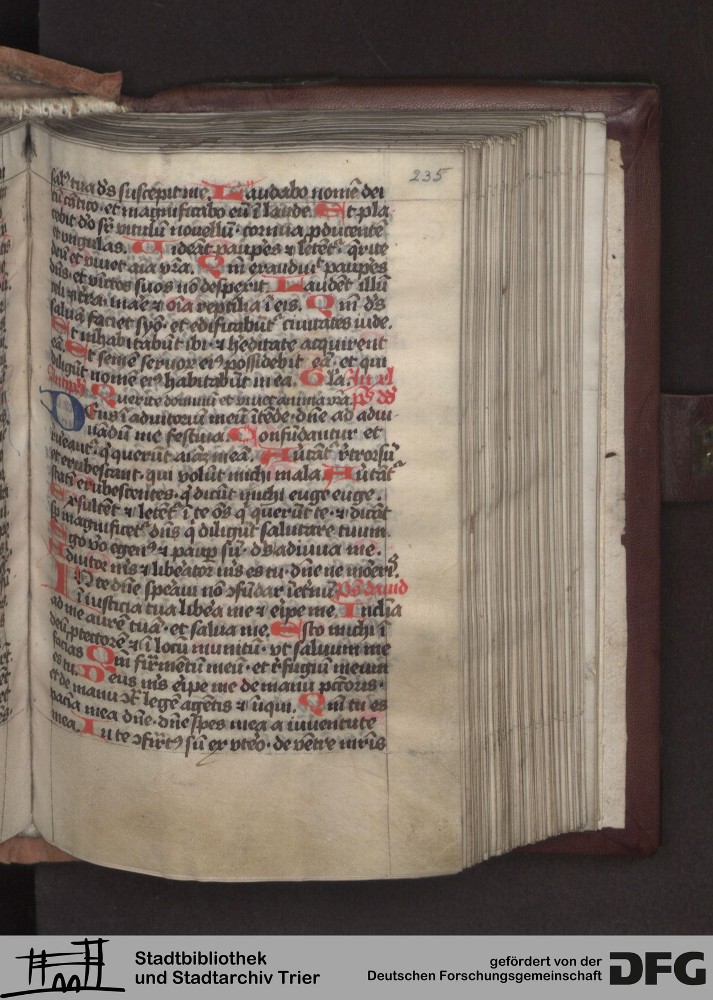 235
salꝰ tua ds suscepit me. Laudabo nomē dei
cū cātico · et magnificabo eū ī laude. Et pla
cebit dō sr̄ vitulū nouellū · cornua ꝓducentē
et vngulas. Uideāt paupes ⁊ letētr̄ · qrite
deū et viuet aīa vrā. Qm̄ exaudiuit paupes
dn̄s · et vīctos suos nō despexit. Laudēt illū
celi ⁊ t̄ra · mare ⁊ oīa reptilia ī eis. Qm̄ ds
saluā faciet syō · et edificabūt̄ ciuitates iude.
Et inhabitabūt ibi · ⁊ h̓editate acquirent
eā. Et semē seruoꝝ eiꝰ possidebit eā · et qui
diligūt nomē eiꝰ habitabūt in ea. Gla.
Querite dominū et viuet anima vrā. ps dd
Deus ī adiutoriū meū ītēde · dn̄e ad adiu
uādū me festina. Confūdantur et
reueāt̄r · q̄ querūt aīaꝫ meā. Au̓tāt̄r r̓trorsū
et erubescant · qui volūt michi mala. Au̓tāt̄r
statī erubescentes · q̄ dicūt michi euge euge.
Exultēt ⁊ letēt̄r ī te oēs q̄ querūt te · ⁊ dicāt
sp̄ magnificet̄r dn̄s q̄ diligūt salutare tuum.
Ego v̓o egenꝰ ⁊ paup sū · ds adiuua me.
Adiutor m̄s ⁊ lib̓ator m̄s es tu · dn̄e ne mōeris.
In te dn̄e speraui nō ꝯfūdar īet̓nū ps dauid
ī iusticia tua lib̓a me ⁊ eripe me. Inclīa
ad me aurē tuā · et salua me. Esto michi ī
deū ꝓtectorē ⁊ ī locū munitū · vt saluum me
facias. Qm̄ firmētū meū · et r̓fugiū meum
es tu. Deus m̄s eripe me de manu pctoris ·
et de manu ꝯt̓ legē agētis ⁊ īiqui. Qm̄ tu es
paciā mea dn̄e · dn̄e spes mea a iuuentute
mea. In te ꝯfirmatꝰ sū ex vtero · de ventre mr̄is
Stadtbibliothek
und Stadtarchiv Trier
gefördert von der
Deutschen Forschungsgemeinschaft
DFG